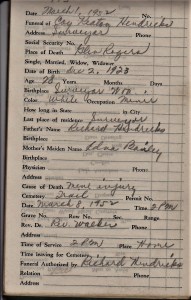 Date March 1, 1952 No.
Funeral of Roy Paxton Hendricks
Address Surveyor
Social Security No.
Place of Death Glen Rogers
Single, Married, Widow, Widower
Date of Birth Dec 2, 1923
Age 28 Years Months Days
Birthplace Surveyor W.Va.
Color White Occupation Miner
How long in State in City
Last place of residence Surveyor
Father's Name Richard Hendricks
Birthplace
Mother's Maiden Name
Birthplace
Physician
Address
Cause of Death Mine injury
Cemetery Permit No.
Date March 4, 1952 Time 2 PM
Grave No. Row No. Sec. Range
Rev. Dr. Rev. Walker
Address
Time of Service 2 PM Place Home
Time leaving for Cemetery
Funeral Authorized by Richard Hendricks
Relation Phone
Address